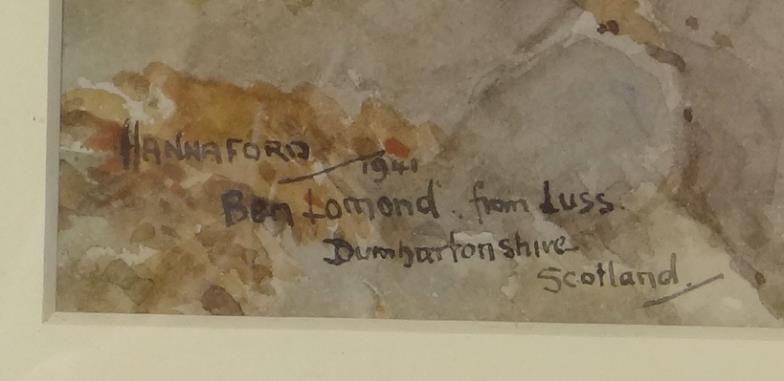 HANNAFORD
1941
Ben Lomond. from Luss.
Dumbartonshire
Scotland.